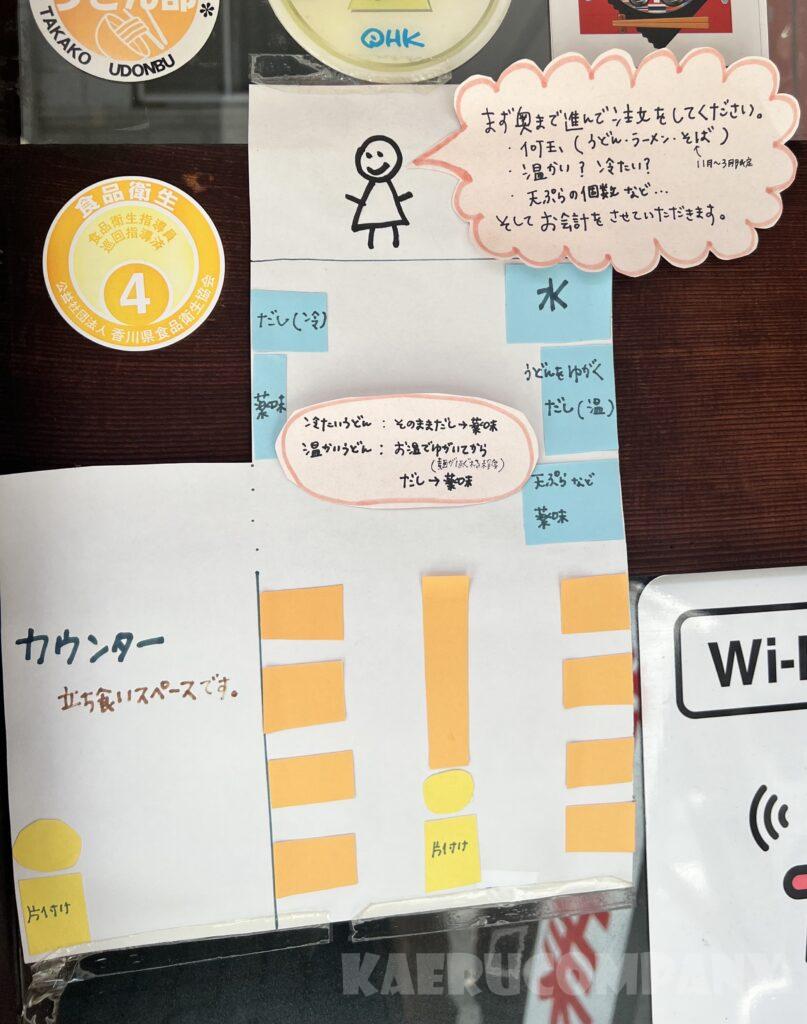 うどん部*
TAKAKO UDONBU
QHK
まず奥まで進んで注文をしてください。
・何玉、(うどん・ラーメン・そば)
11月〜3月限定
・温かい？冷たい？
・天ぷらの個数など…
そしてお会計をさせていただきます。
食品衛生
食品衛生指導員
巡回指導済
4
公益社団法人 香川県食品衛生協会
だし(冷)
水
薬味
うどんをゆがく
だし(温)
冷たいうどん：そのままだし→薬味
温かいうどん：お湯でゆがいてから
(麺がほぐれる程度)
だし→薬味
天ぷらなど
薬味
カウンター
立ち食いスペースです。
片付け
片付け
Wi-
KAERUCOMPANY